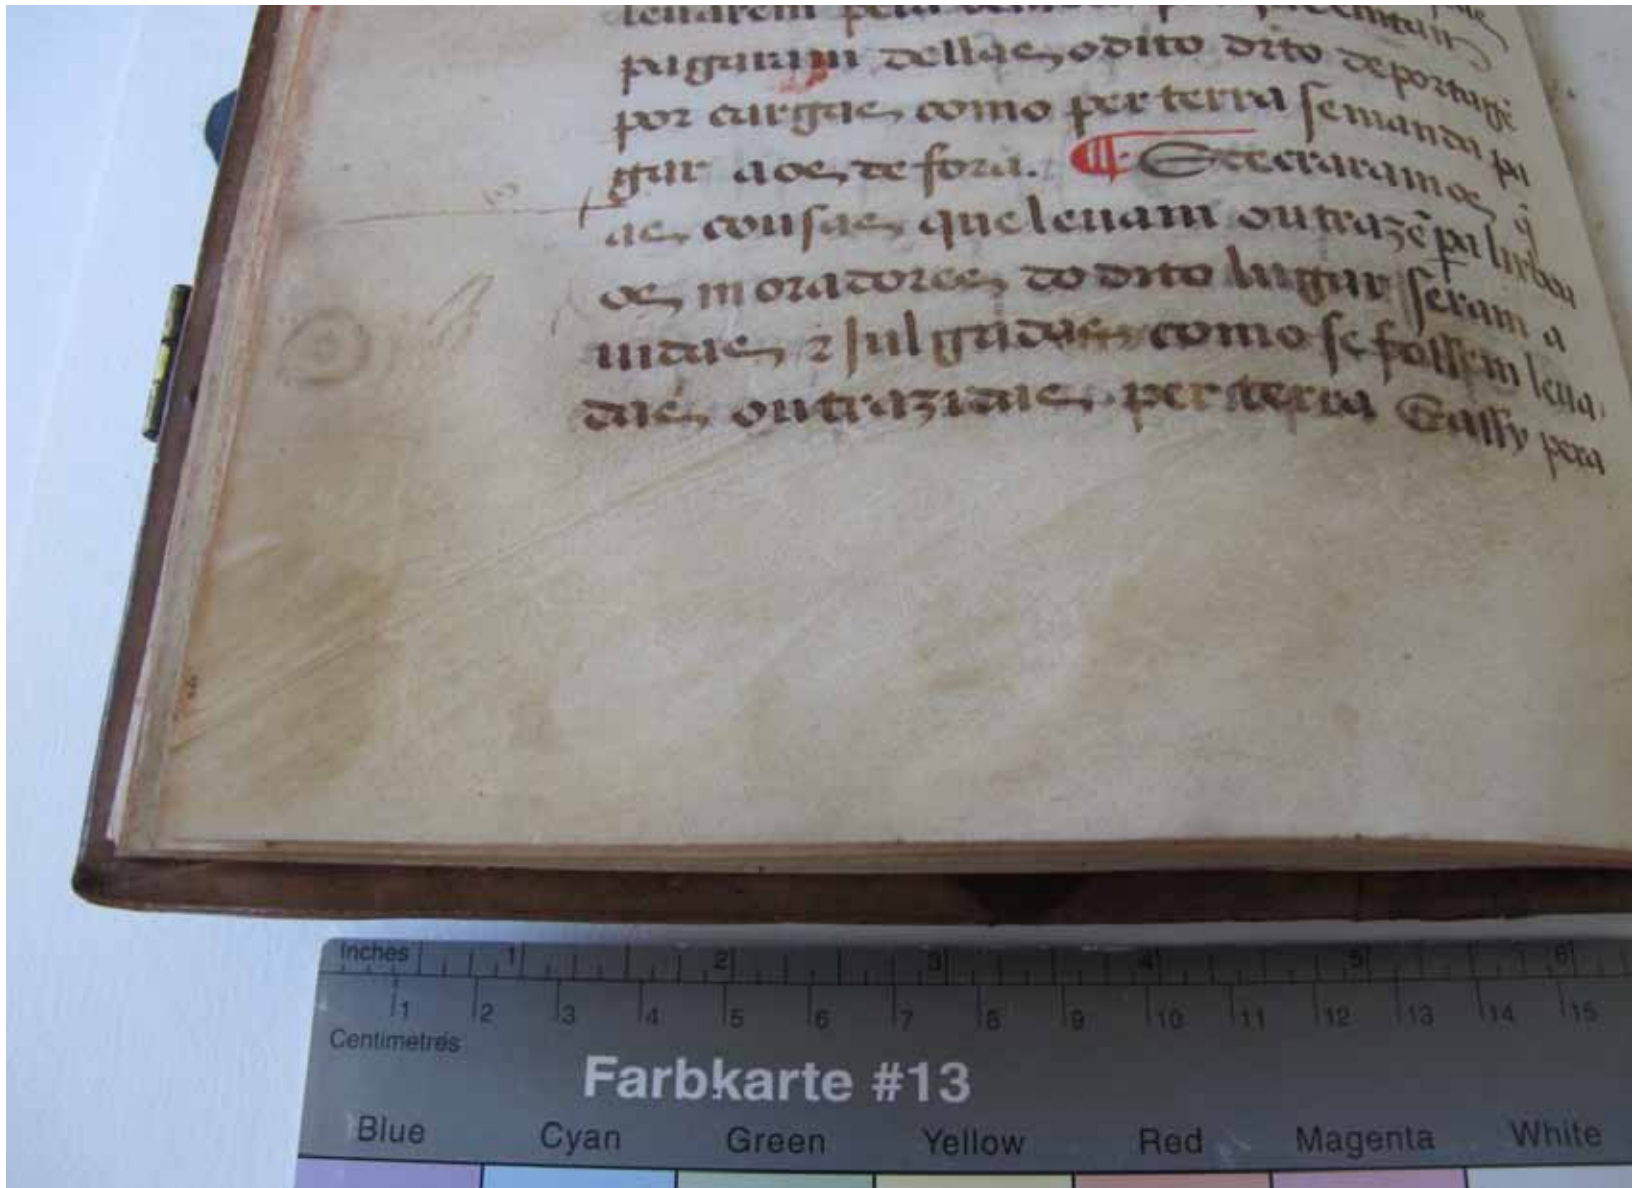 leuarem pera
pagaram dellas o dito dito de portage
por cargas como per terra se manda pa
gar aos de fora. ¶ E decraramos q̃
as cousas que leuam ou trazẽ pa lixboa
os moradores do dito lugar seram a
uidas ⁊ julgadas como se fossem leua
das ou trazidas per terra E assy pera
Inches 1 2 3 4 5 6
1 2 3 4 5 6 7 8 9 10 11 12 13 14 15
Centimetres
Farbkarte #13
Blue Cyan Green Yellow Red Magenta White